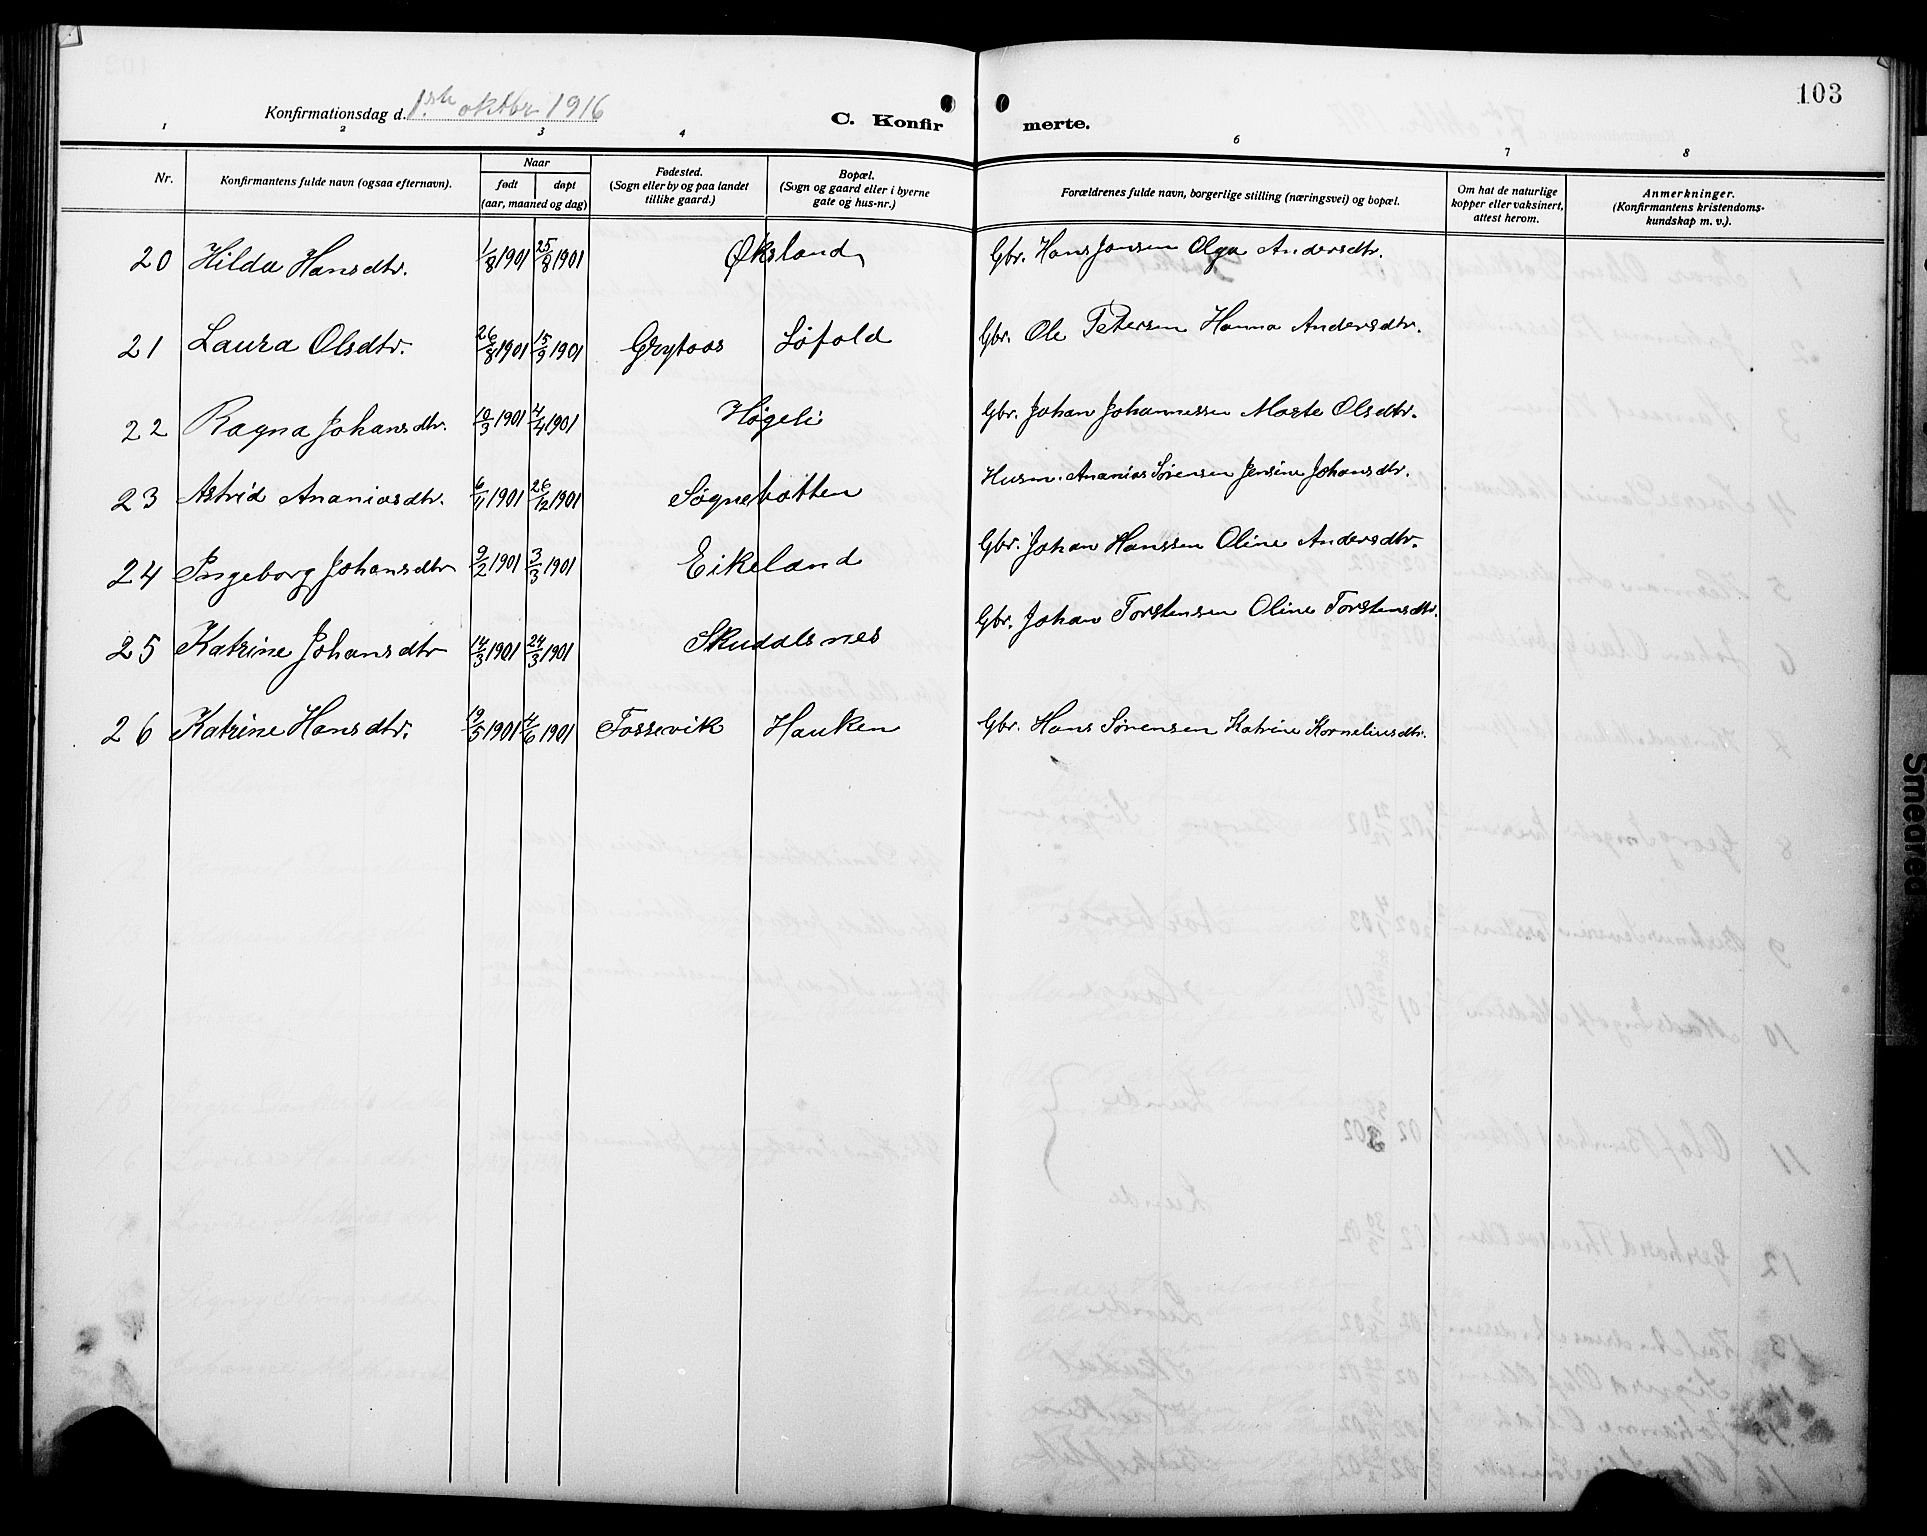 103
Konfirmationsdag d. 1ste oktbr 1916
C. Konfirmerte.
1 2 3 4 6 7 8
Nr.
Konfirmantens fulde navn (ogsaa efternavn).
Naar
født døpt
(aar, maaned og dag)
Fødested.
(Sogn eller by og paa landet
tillike gaard.)
Bopæl.
(Sogn og gaard eller i byerne
gate og hus-nr.)
Forældrenes fulde navn, borgerlige stilling (næringsvei) og bopæl.
Om hat de naturlige
kopper eller vaksinert,
attest herom.
Anmerkninger.
(Konfirmantens kristendoms-
kundskap m. v.).
20 Hilda Hansdtr. 1/8 1901 25/8 1901 Øksland Gbr. Hans Jansen Olga Andersdtr.
21 Laura Olsdtr. 26/8 1901 15/9 1901 Grytaas Løfold Gbr. Ole Petersen Hanna Andersdtr.
22 Ragna Johansdtr. 10/3 1901 4/4 1901 Høgeli Gbr. Johan Johannessen Marte Olsdtr.
23 Astrid Ananiasdtr. 6/11 1901 26/12 1901 Søgnebotten Husm. Ananias Sørensen Jensine Johansdtr.
24 Ingeborg Johansdtr 9/2 1901 3/3 1901 Eikeland Gbr. Johan Hanssen Oline Andersdtr.
25 Katrine Johansdtr 14/3 1901 24/3 1901 Skudalsnes Gbr. Johan Torstensen Oline Torstensdtr.
26 Katrine Hansdtr. 19/5 1901 4/6 1901 Fossevik Hauken Gbr. Hans Sørensen Katrine Korneliusdtr.
Smedred